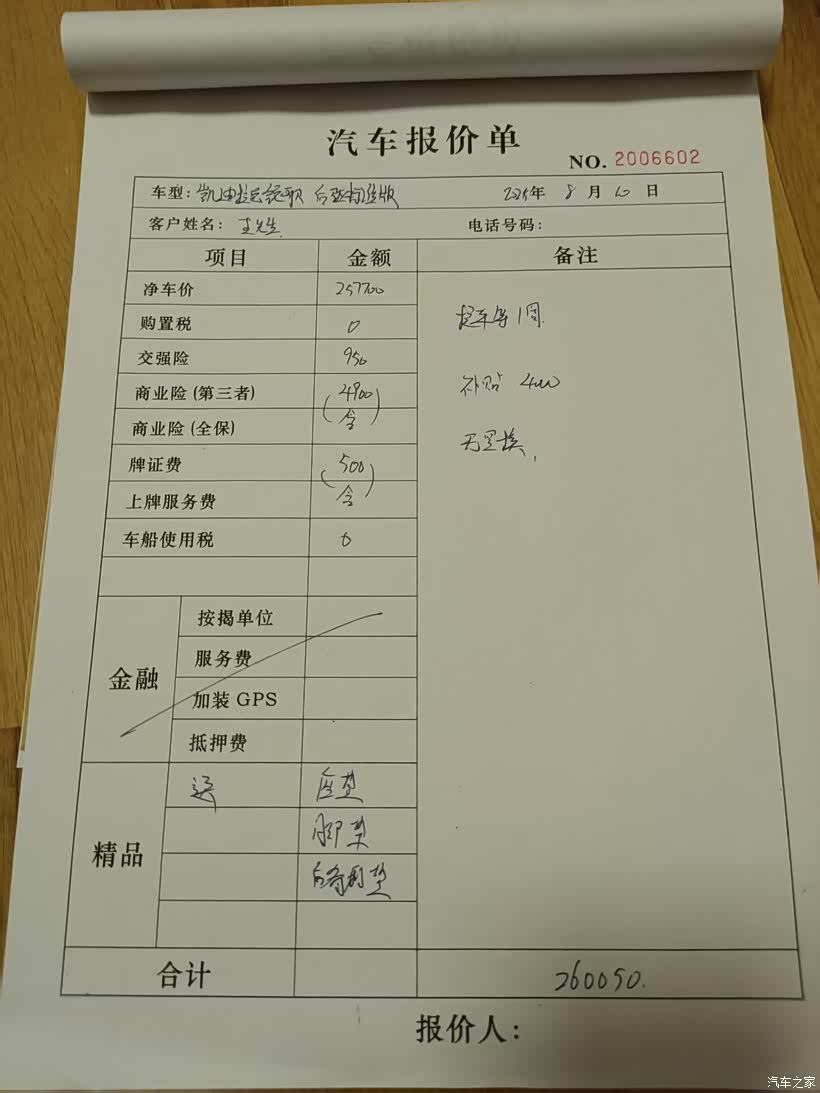 汽车报价单
NO. 2006602
车型: 凯迪拉克锐歌 后驱标准版 2025年 8 月 10 日
客户姓名: 王先生 电话号码:
项目 金额 备注
净车价 257700
购置税 0
提车等1周
交强险 950
补贴 4000
商业险 (第三者) (4900
商业险 (全保) 含)
无置换
牌证费 (500
上牌服务费 含)
车船使用税 0
金融
按揭单位
服务费
加装 GPS
抵押费
精品
送 座垫
脚垫
后备箱垫
合计 260050.
报价人:
汽车之家